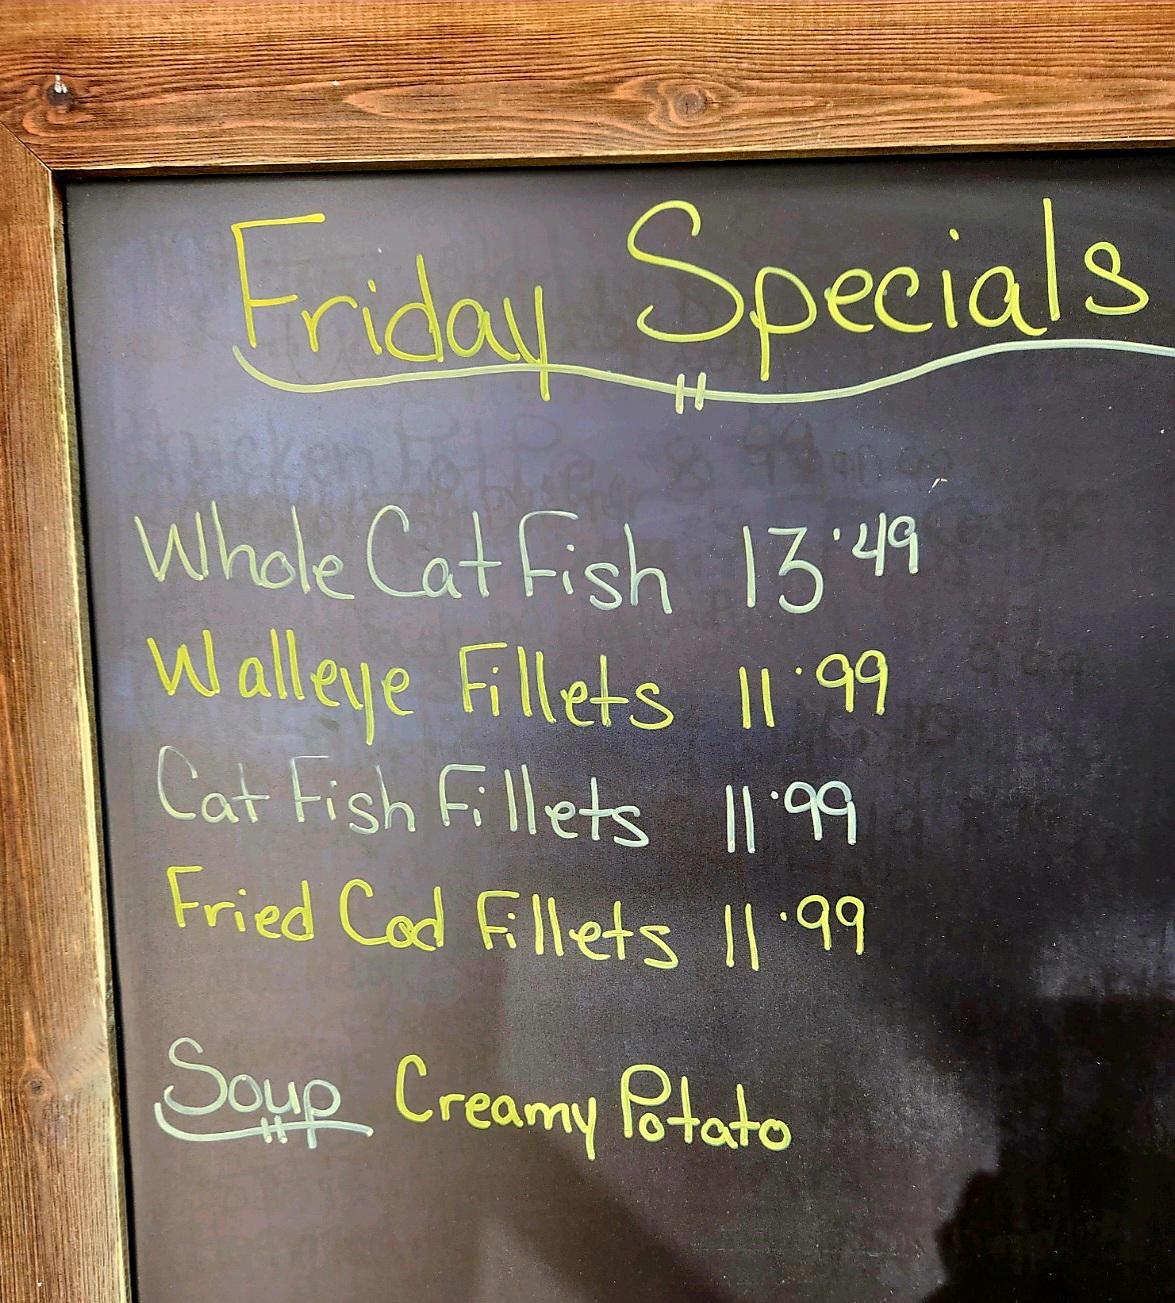 Friday Specials
Whole Cat Fish 13.49
Walleye Fillets 11.99
Cat Fish Fillets 11.99
Fried Cod Fillets 11.99
Soup Creamy Potato